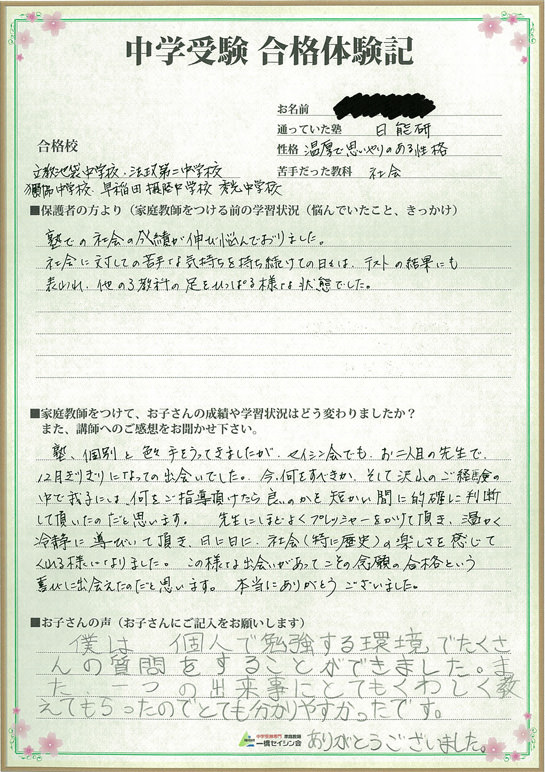 中学受験 合格体験記
お名前
通っていた塾 日能研
性格 温厚で思いやりのある性格
苦手だった教科 社会
合格校
立教池袋中学校・法政第二中学校
獨協中学校・早稲田摂陵中学校
■保護者の方より（家庭教師をつける前の学習状況（悩んでいたこと、きっかけ）
塾での社会の成績が伸び悩んでおりました。
社会に対しての苦手な気持ちを持ち続けての日々は、テストの結果にも
表われ、他の3教科の足をひっぱる様な状態でした。
■家庭教師をつけて、お子さんの成績や学習状況はどう変わりましたか？
また、講師へのご感想をお聞かせ下さい。
塾、個別と色々手をうってきましたが、セイシン会でも、お二人目の先生で、
12月ぎりぎりになっての出会いでした。今、何をすべきか、そして沢山のご経験の
中で我子には、何をご指導頂けたら良いのかを短かい間に的確に判断
して頂いたのだと思います。 先生にはほどよくプレッシャーをかけて頂き、温かく
冷静に導びいて頂き、日に日に、社会（特に歴史）の楽しさを感じて
くれる様になりました。この様な出会いがあってこその念願の合格という
喜びに出会えたのだと思います。 本当にありがとうございました。
■お子さんの声（お子さんにご記入をお願いします）
僕は、個人で勉強する環境でたくさ
んの質問をすることができました。ま
た、一つの出来事にとてもくわしく教
えてもらったのでとても分かりやすかったです。
中学受験専門 家庭教師
一橋セイシン会
ありがとうございました。